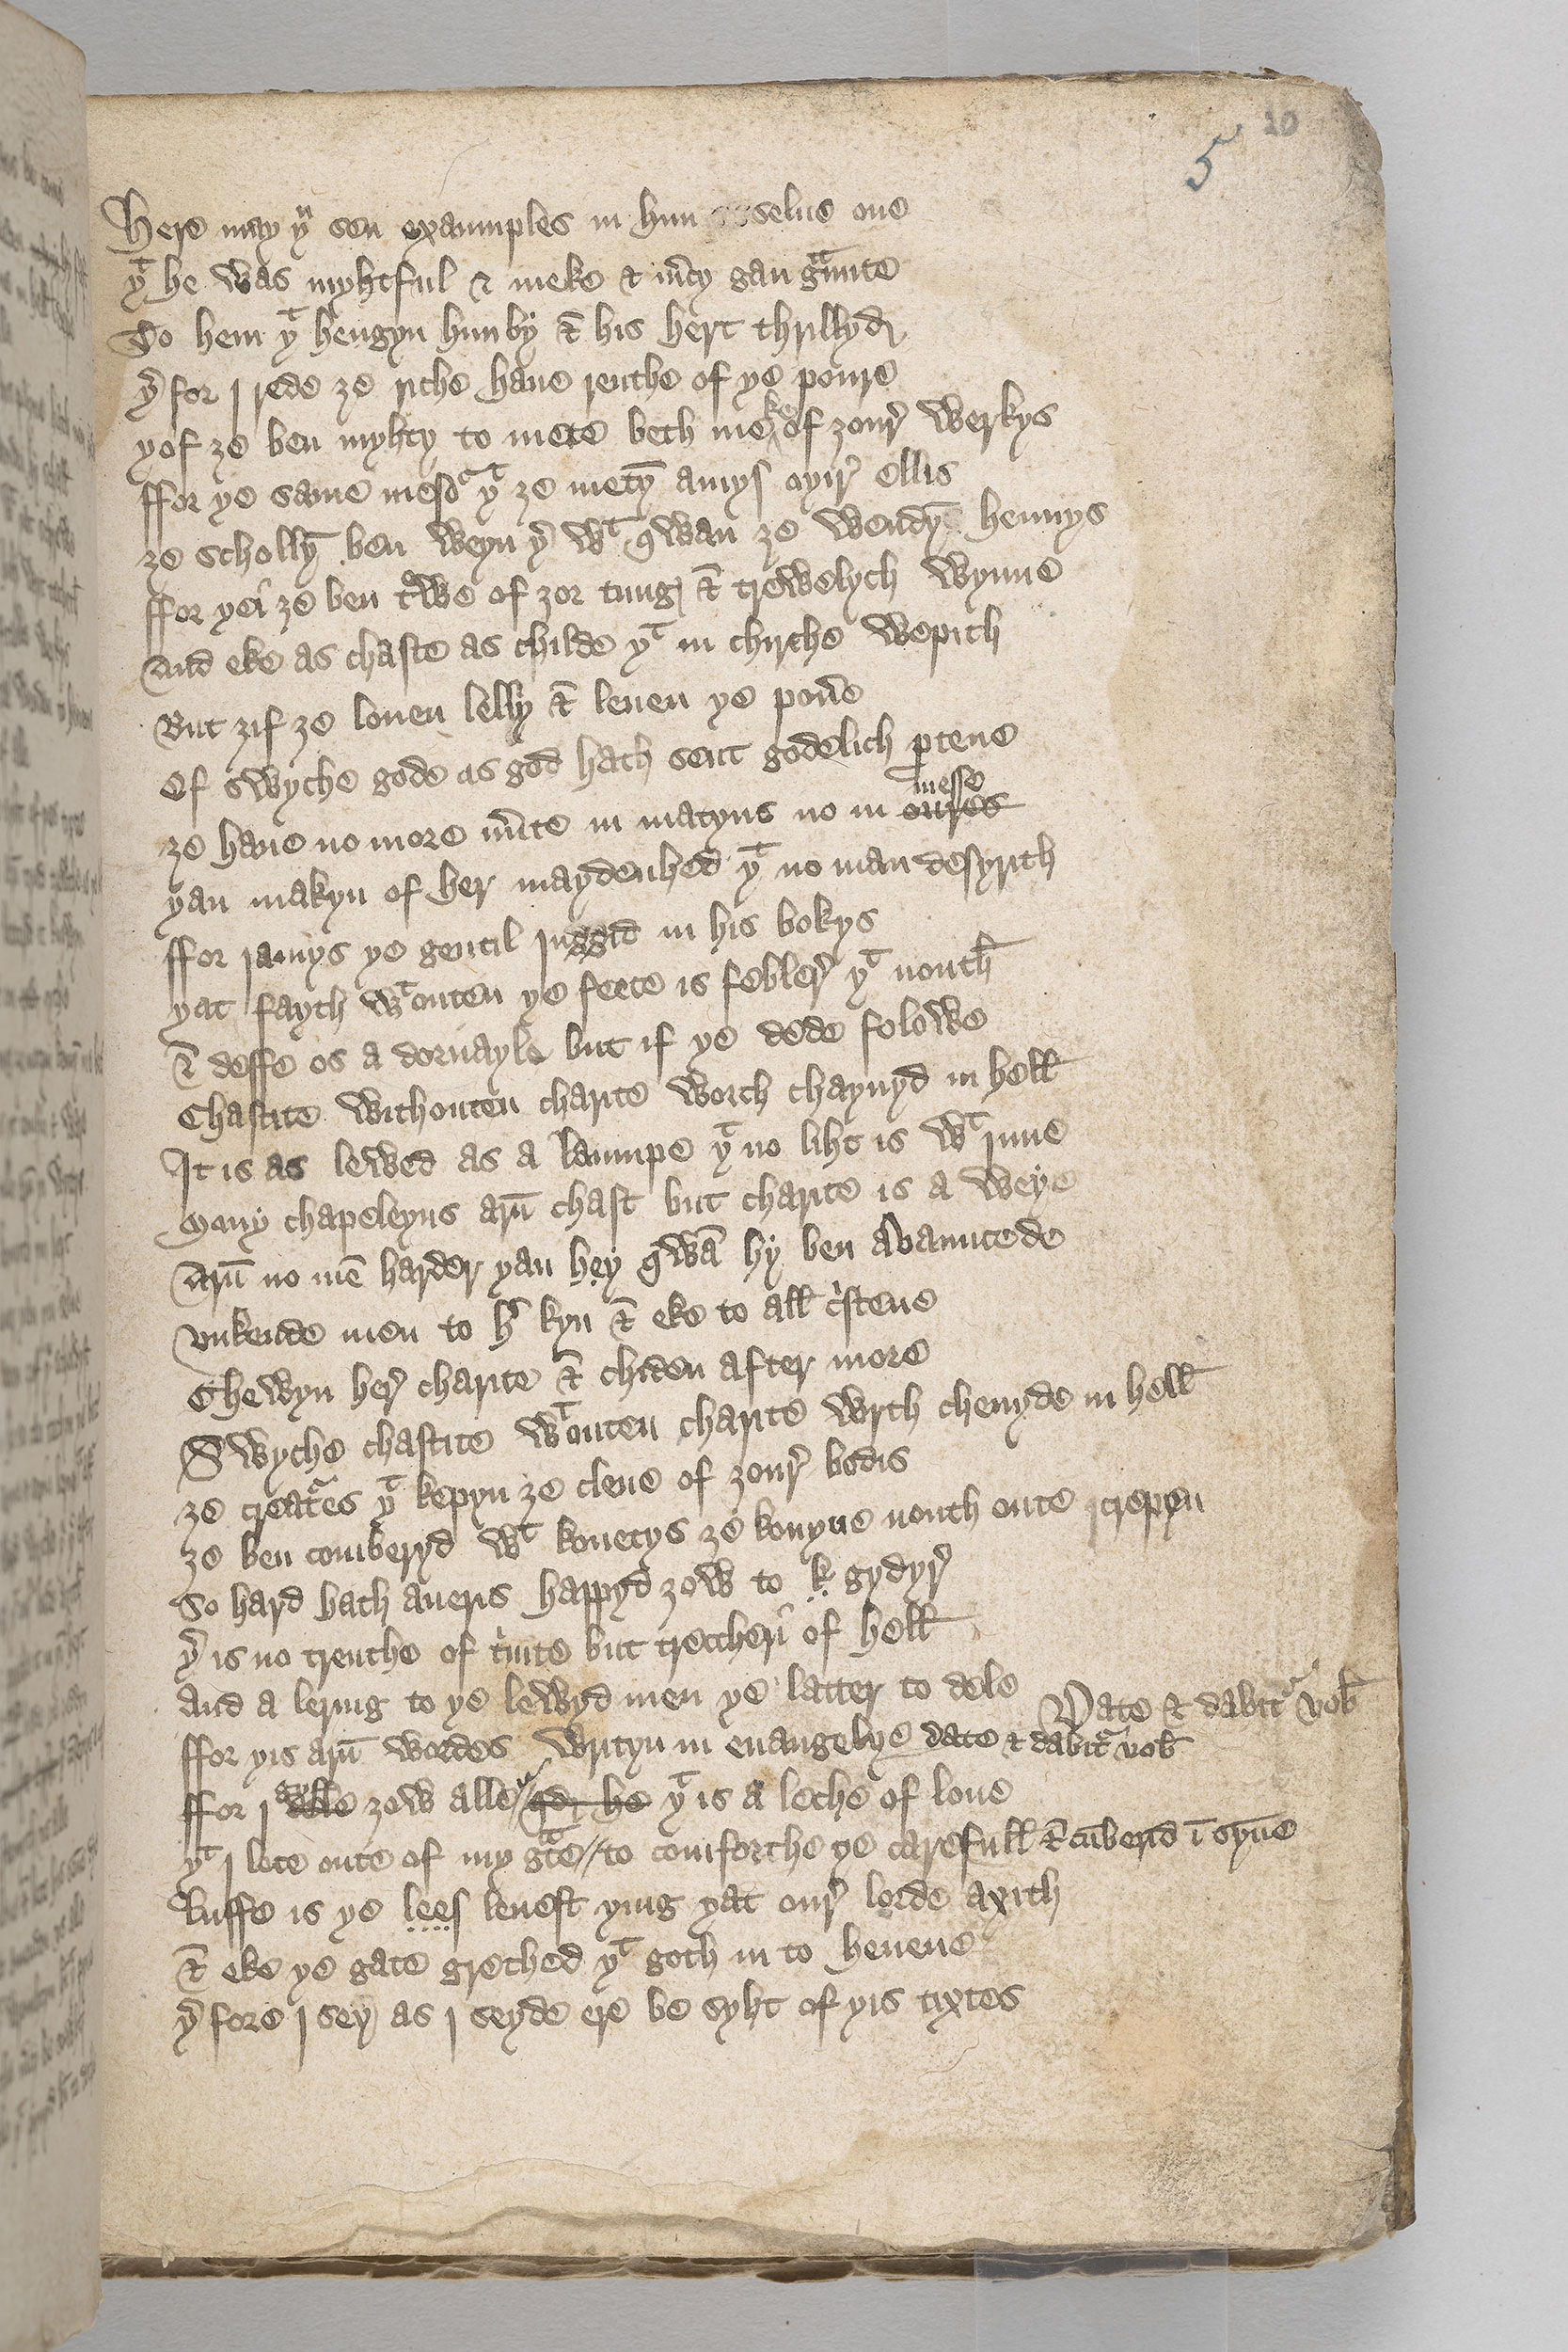 20
5
Here may yu sen exaumples in him selue one
yt he was myhtful & meke & mcy gan graunte
To hem yt hengyn him by & his hert thrillyd
yerfor j rede ze riche haue reuthe of ye poure
yof ze ben myhty to mete beth meke of zour werkys
ffor ye same mesor yt ze metyn amys oyir ellis
ze schollyn ben weyn yer wt qwan ze wendyn hennys
ffor yei ze ben trwe of zor tung & trewelych wynne
And eke as chaste as childe yt in chirche wepith
But zif ze louen lelly & lenen ye poure
Of swyche gode as god hath sent godelich ptene
ze haue no more mite in matyns no in oures messe
yan makyn of her maydenhed yt no man desyrith
ffor iamys ye gentil juggid in his bokys
yat fayth wt outen ye fecte is febler yt nouth
& deffe os a dornayle but if ye dede folowe
Chastite withouten charite worth chaynyd in hell
It is as lewed as a laumpe yt no liht is wt inne
Mony chapeleyns arn chast but charite is a weye
Arn no men harder yan hey qwan hy ben avauntede
vnkende men to hr kyn & eke to all cristene
Chewyn her charite & chiden after more
Swyche chastite wt outen charite wrth chenyde in hell
ze creatres yt kepyn ze clene of zour bodis
ze ben comberyd wt couetys ze konyne nouth oute crepyn
So hard hath aueris happyd zow to k gydyr
yer is no treuthe of trinite but treccheri of hell
And a lering to ye lewyd men ye latter to dele
Date & dabitr vob
ffor yis arn wordes writyn in euangelye date & dabitr vob
ffor j dele zow alle qd he yt is a leche of loue
yt j lote oute of my gace // to comforthe ye carefull & cumberid in synne
luffe is ye lees leuest ying yat our lorde axith
& eke ye gate grethed yt goth in to heuene
yerfore j sey as j seyde ere be syht of yis tixtes